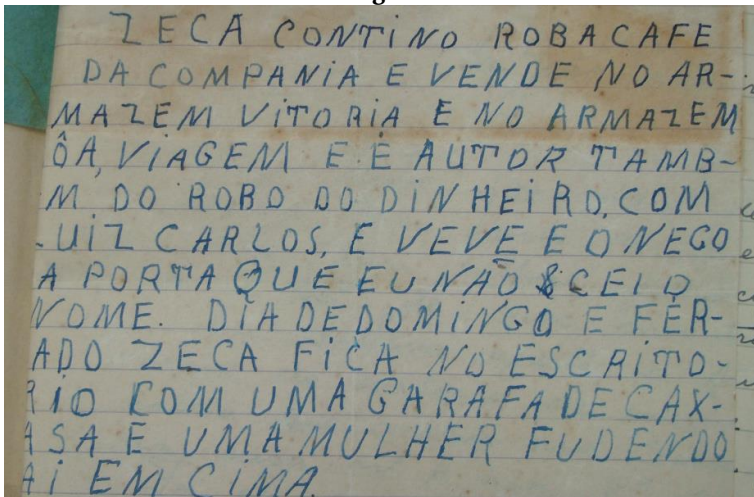 ZECA CONTINO ROBA CAFE
DA COMPANIA E VENDE NO AR-
MAZEM VITORIA E NO ARMAZEM
ÔA, VIAGEM E É AUTOR TAMB-
M DO ROBO DO DINHEIRO, COM
UIZ CARLOS, E VEVE E O NEGO
A PORTA QUE EU NÃO SCEI O
NOME. DIA DE DOMINGO E FER-
ADO ZECA FICA NO ESCRITO-
RIO COM UMA GARAFA DE CAX-
ASA E UMA MULHER FUDENDO
AI EM CIMA.